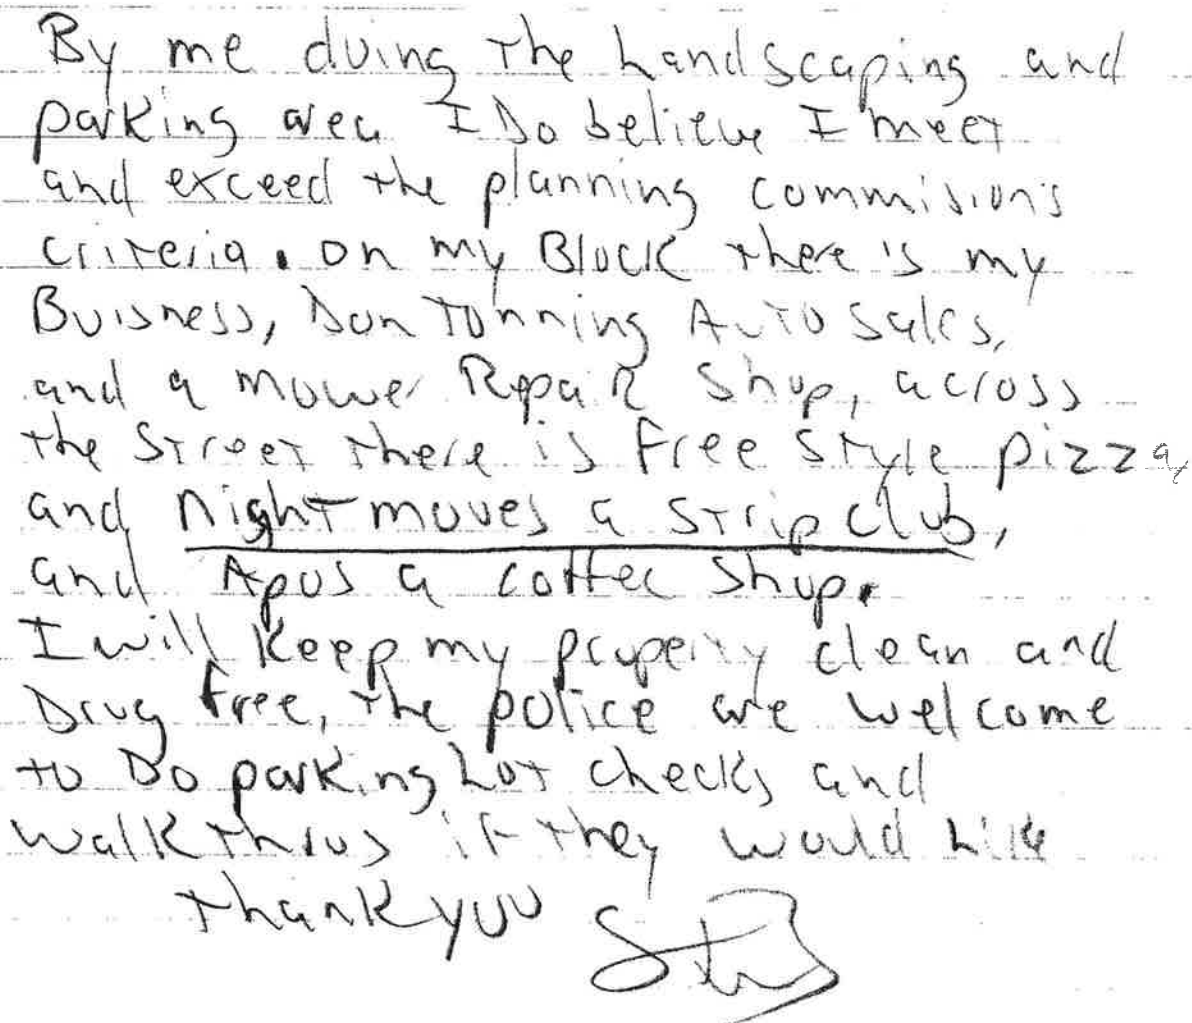 By me duing the Landscaping and
parking area I Do believe I meet
and exceed the planning commision's
criteria. on my Block there is my
Buisness, Dan Tonning Auto Sales,
and a mower Repair Shop, across
the Street there is Free Style pizza,
and Night moves a Strip club,
and Apos a coffee Shop.
I will Keep my property clean and
Drug free, the police are welcome
to Do parking Lot checks and
walk thrus if they would Like
thank you